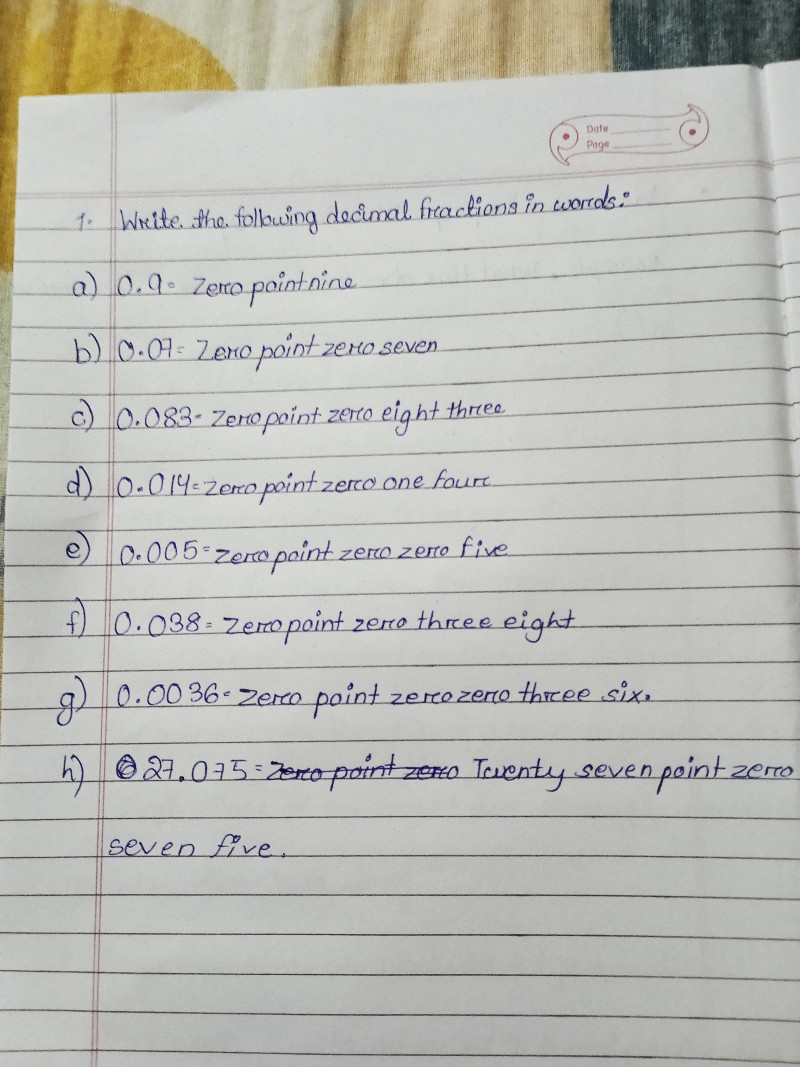 Date
Page
1. Write the following decimal fractions in words:
a) 0.9= Zero point nine
b) 0.07= Zero point zero seven
c) 0.083= Zero point zero eight three
d) 0.014= Zero point zero one four
e) 0.005= Zero point zero zero five
f) 0.038= Zero point zero three eight
g) 0.0036= Zero point zero zero three six.
h) 27.075= Zero point zero Twenty seven point zero
seven five.